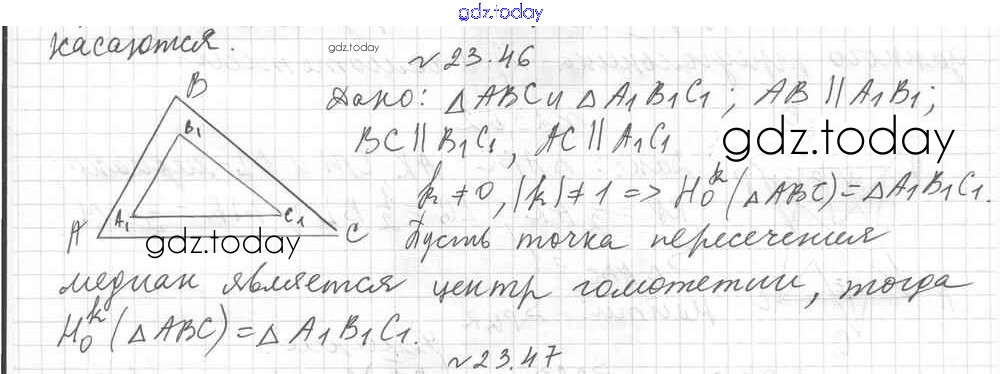 gdz.today
касаются.
gdz.today
№23.46
B
Дано: △ABC и △A₁B₁C₁; AB ∥ A₁B₁;
B₁
BC ∥ B₁C₁, AC ∥ A₁C₁
gdz.today
k ≠ 0, |k| ≠ 1 => H₀ᵏ(△ABC) = △A₁B₁C₁.
A A₁ C₁ C
gdz.today
Пусть точка пересечения
медиан является центр гомотетии, тогда
H₀ᵏ(△ABC) = △A₁B₁C₁.
№23.47